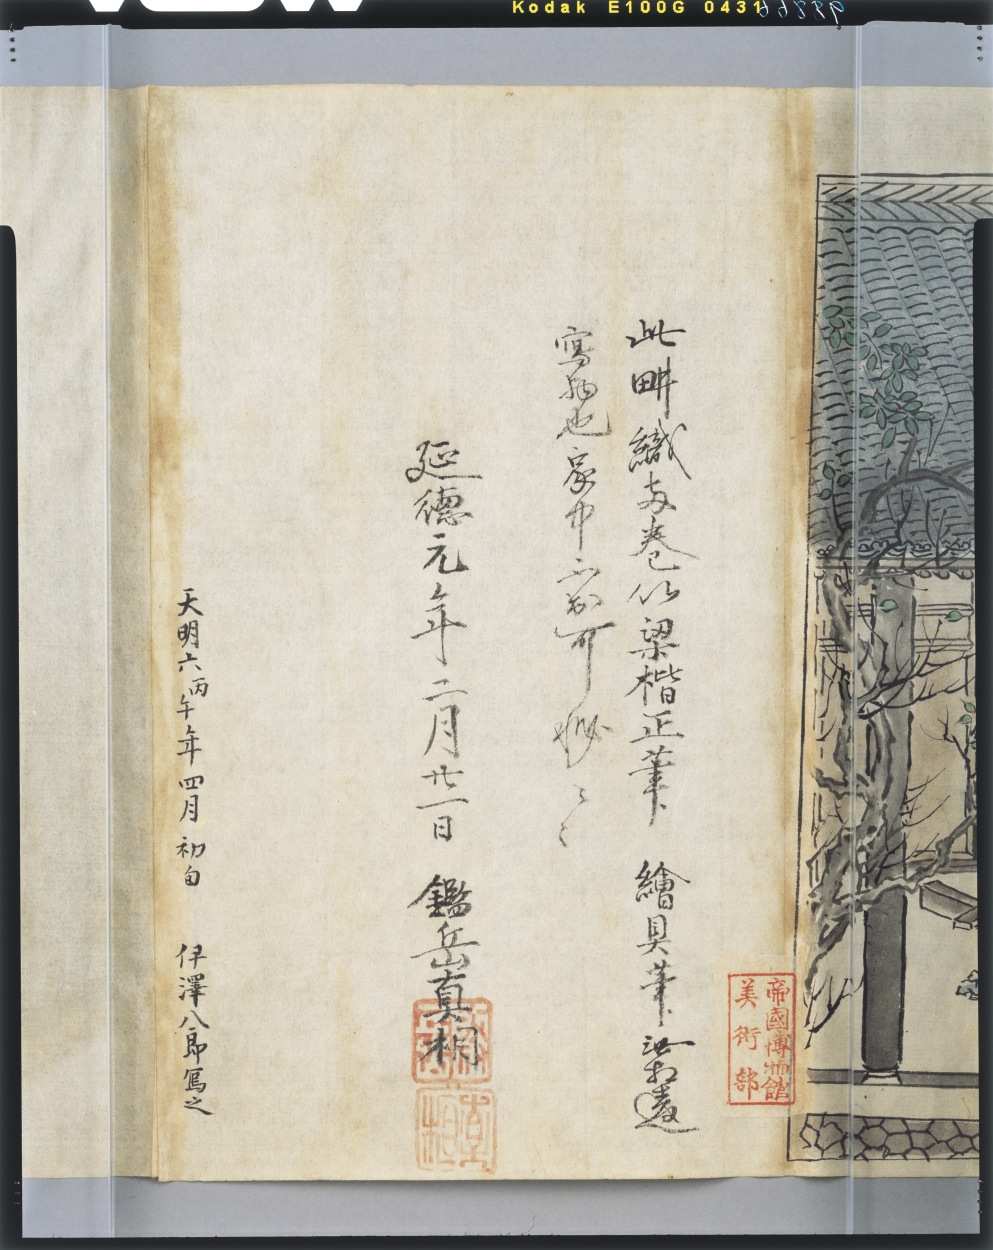 Kodak E100G 0431
此畊織両巻以梁楷正筆 繪具筆無相違
寫物也家中不出可秘〻〻
延德元年二月廿一日 鑑岳真相
天明六丙午年四月初旬 伊澤八郎写之
帝國博物館
美術部